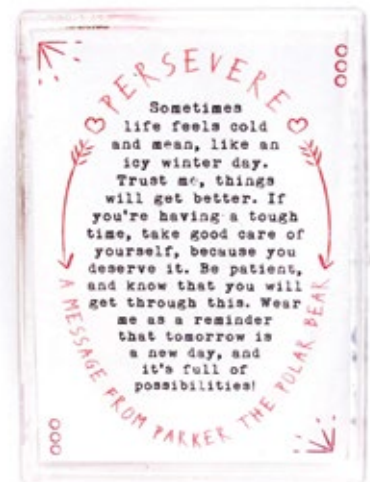 PERSEVERE
Sometimes
life feels cold
and mean, like an
icy winter day.
Trust me, things
will get better. If
you're having a tough
time, take good care of
yourself, because you
deserve it. Be patient,
and know that you will
get through this. Wear
me as a reminder
that tomorrow is
a new day, and
it's full of
possibilities!
A MESSAGE FROM PARKER THE POLAR BEAR